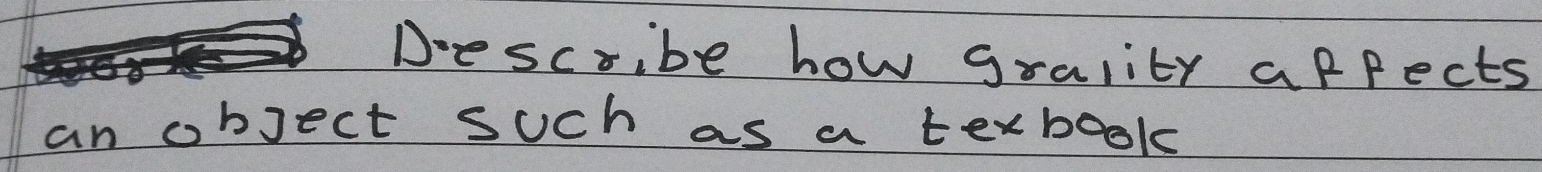 Describe how graiity affects
an object such as a texbook